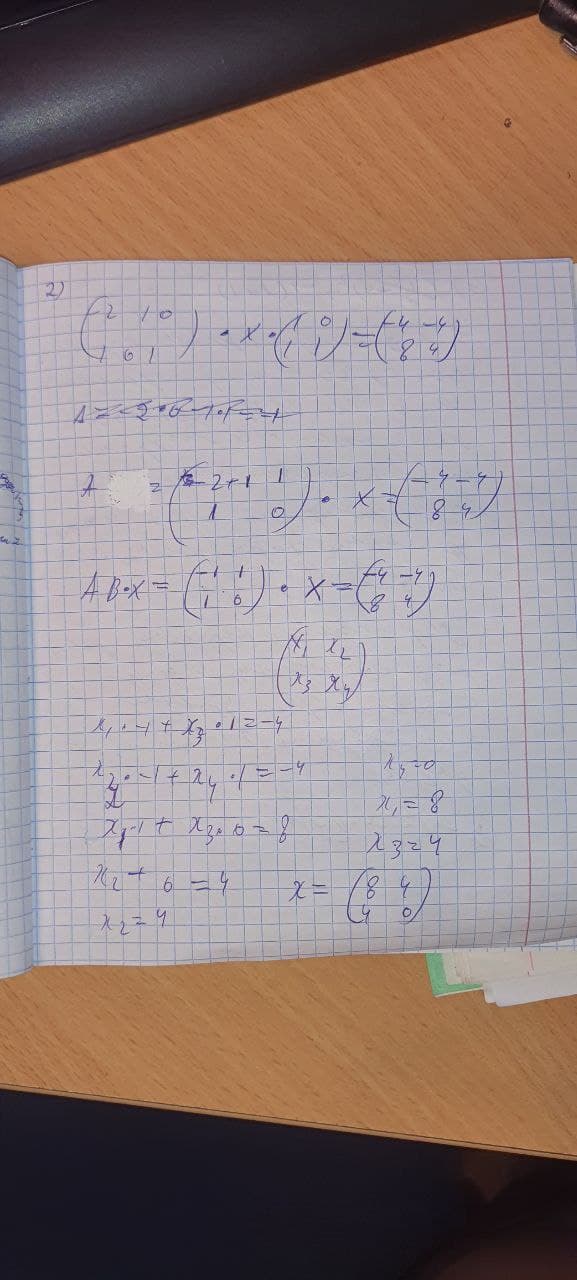 2)
(-2 1 0
1 0 1) · x · (1 0
1 1) = (-4 -4
8 4)
Δ = -2·0-1·1=-1
A = (-2+1 1
1 0) · x = (-4 -4
8 4)
AB·x = (-1 1
1 0) · x = (-4 -4
8 4)
(x₁ x₂
x₃ x₄)
x₁ · -1 + x₃ · 1 = -4
x₂ · -1 + x₄ · 1 = -4
x₁·1 + x₃·0 = 8
x₂ + 0 = 4
x₂ = 4
x₄=0
x₁ = 8
x₃=4
x = (8 4
4 0)